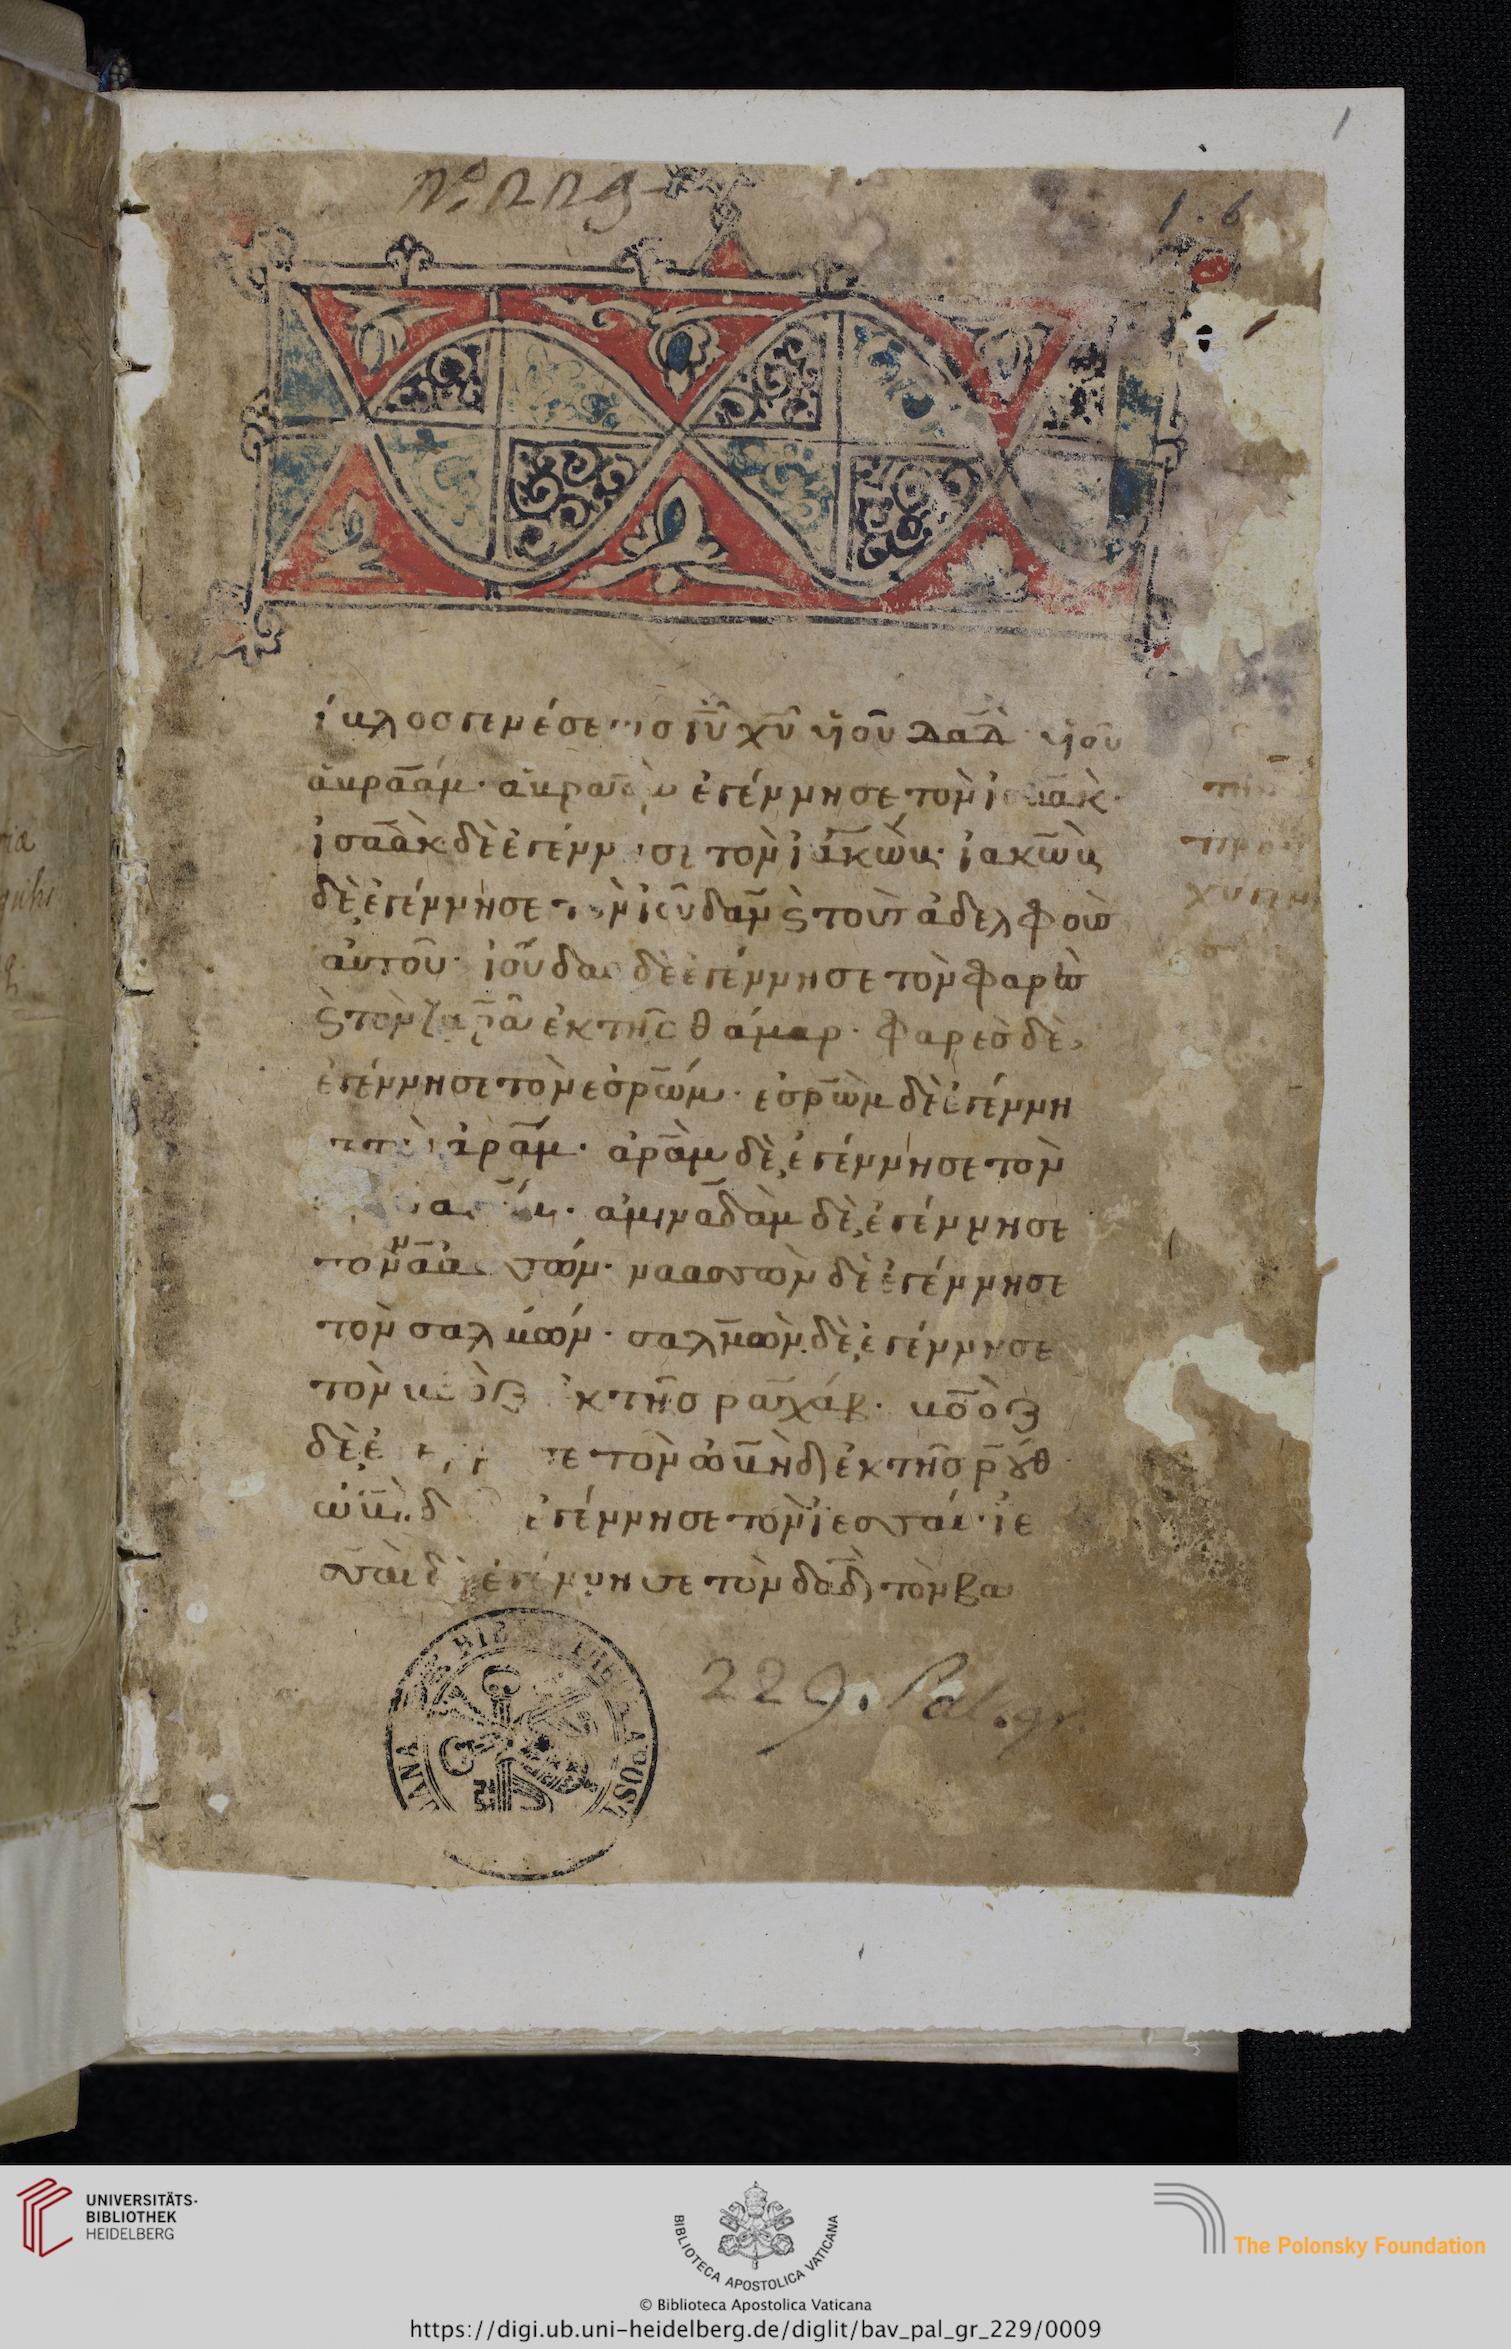 1
No. 229
1. 6
ίβλος γενέσεως ι̅υ̅ χ̅υ̅ υἱοῦ δα̅δ̅· υἱοῦ
ἀβραάμ· ἀβραὰμ ἐγέννησε τὸν ἰσαάκ·
ἰσαὰκ δὲ ἐγέννησε τὸν ἰακώβ· ἰακὼβ
δὲ ἐγέννησε τὸν ἰούδαν ϛ τοὺς ἀδελφοὺς
αὐτοῦ· ἰούδας δὲ ἐγέννησε τὸν φαρὲς
ϛ τὸν ζαρὰ ἐκ τῆς θάμαρ· φαρὲς δὲ
ἐγέννησε τὸν ἐσρώμ· ἐσρὼμ δὲ ἐγέννη
ἀράμ· ἀρὰμ δὲ ἐγέννησε τὸν
ἀμιναδὰμ δὲ ἐγέννησε
τὸν ναασσών· ναασσὼν δὲ ἐγέννησε
τὸν σαλμών· σαλμὼν δὲ ἐγέννησε
τὸν βοὸζ ἐκ τῆς ραχάβ· βοὸζ
δὲ τὸν ὠβὴδ ἐκ τῆς ρούθ
ὠβὴδ ἐγέννησε τὸν ἰεσσαί· ἰε
σσαὶ δὲ ἐγέννησε τὸν δα̅δ̅ τὸν βα
229. Pal. gr.
UNIVERSITÄTS-
BIBLIOTHEK
HEIDELBERG
BIBLIOTECA APOSTOLICA VATICANA
The Polonsky Foundation
© Biblioteca Apostolica Vaticana
https://digi.ub.uni-heidelberg.de/diglit/bav_pal_gr_229/0009